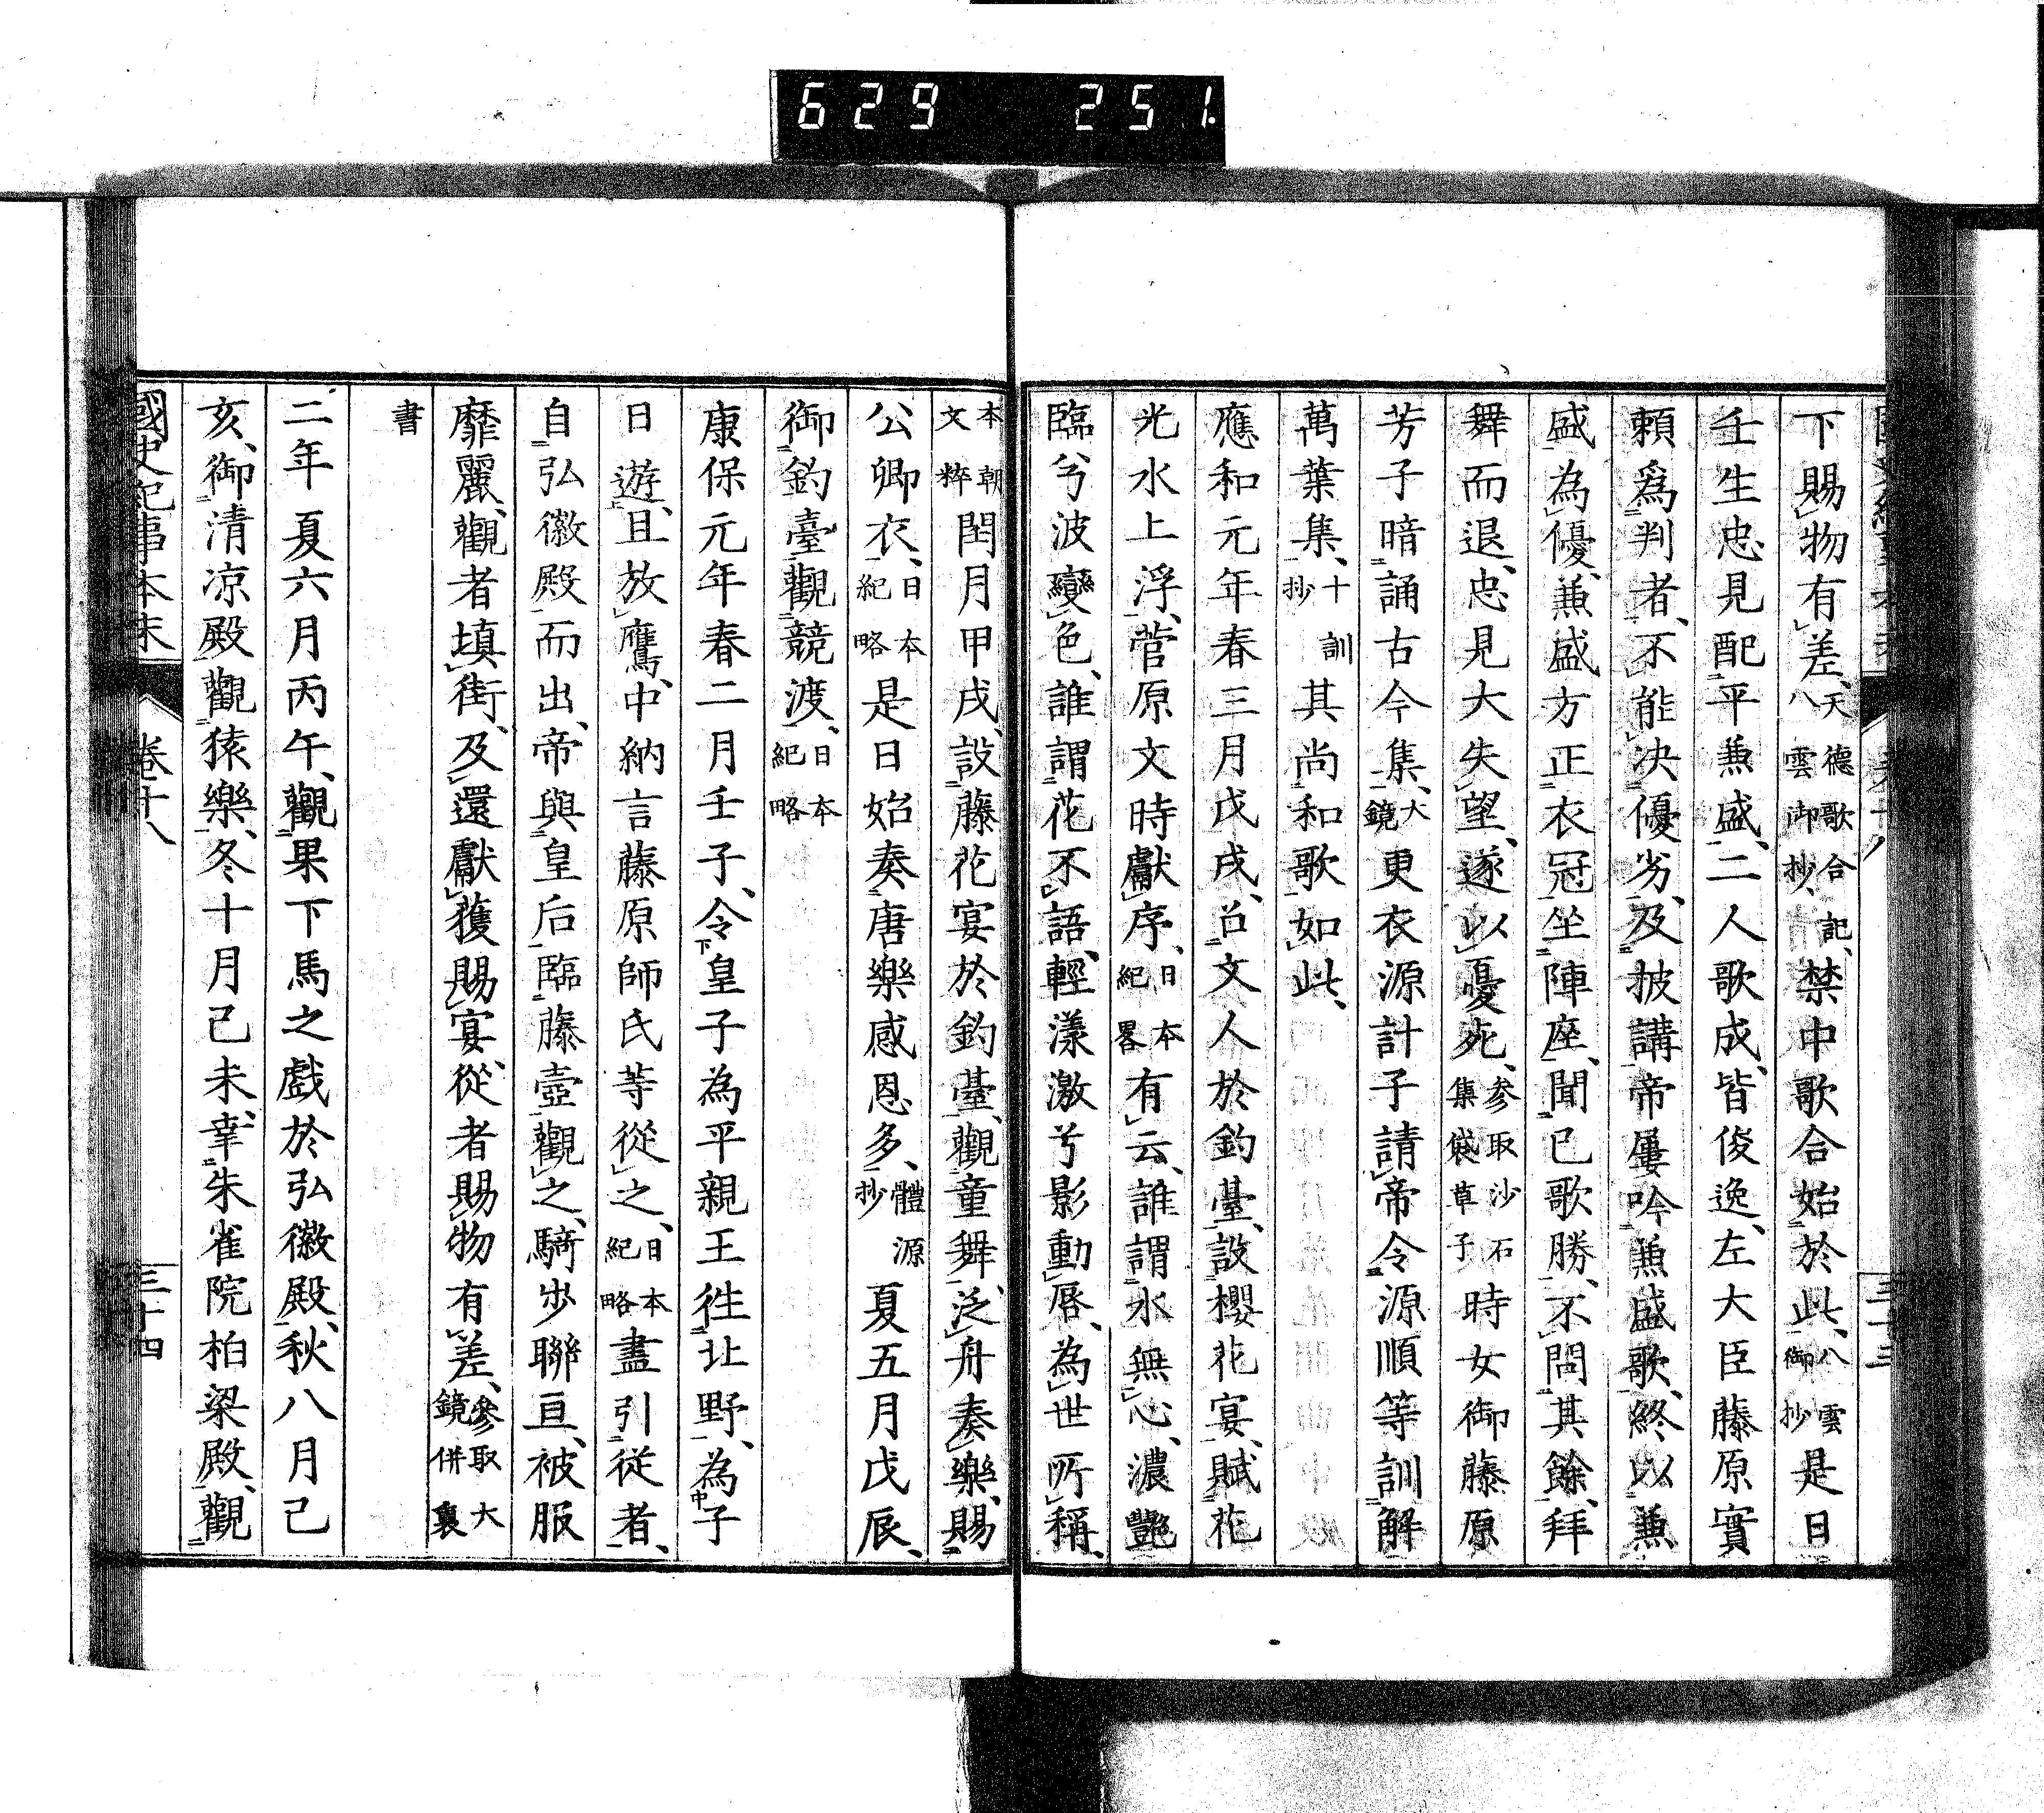 629 251
下賜物有差、天德歌合記、八雲御抄、禁中歌合始於此、八雲御抄是日
壬生忠見配平兼盛、二人歌成、皆俊逸、左大臣藤原實
賴爲判者、不能决優劣、及披講帝屢吟兼盛歌、終以兼
盛為優、兼盛方正衣冠坐陣座、聞已歌勝、不問其餘、拜
舞而退、忠見大失望、遂以憂死、参取沙石集袋草子時女御藤原
芳子暗誦古今集、大鏡更衣源計子請帝令源順等訓解
萬葉集、十訓抄其尚和歌如此、
應和元年春三月戊戌、召文人於釣臺、設櫻花宴、賦花
光水上浮、菅原文時獻序、日本紀畧有云、誰謂水無心、濃艷
臨兮波變色、誰謂花不語、輕漾激兮影動唇、為世所稱、
本朝文粹閏月甲戌、設藤花宴於釣臺、觀童舞、泛舟奏樂、賜
公卿衣、日本紀略是日始奏唐樂感恩多、體源抄夏五月戊辰、
御釣臺觀競渡、日本紀略
康保元年春二月壬子、令皇子為平親王徃北野、為子
日遊、且放鷹、中納言藤原師氏等從之、日本紀略盡引從者、
自弘徽殿而出、帝與皇后臨藤壺觀之、騎步聯亘、被服
靡麗、觀者塡街、及還獻獲賜宴、從者賜物有差、參取大鏡併裏
書
二年夏六月丙午、觀果下馬之戲於弘徽殿、秋八月己
亥、御清凉殿觀猿樂、冬十月己未、幸朱雀院柏梁殿、觀
國史紀事本末 卷十八 三十四